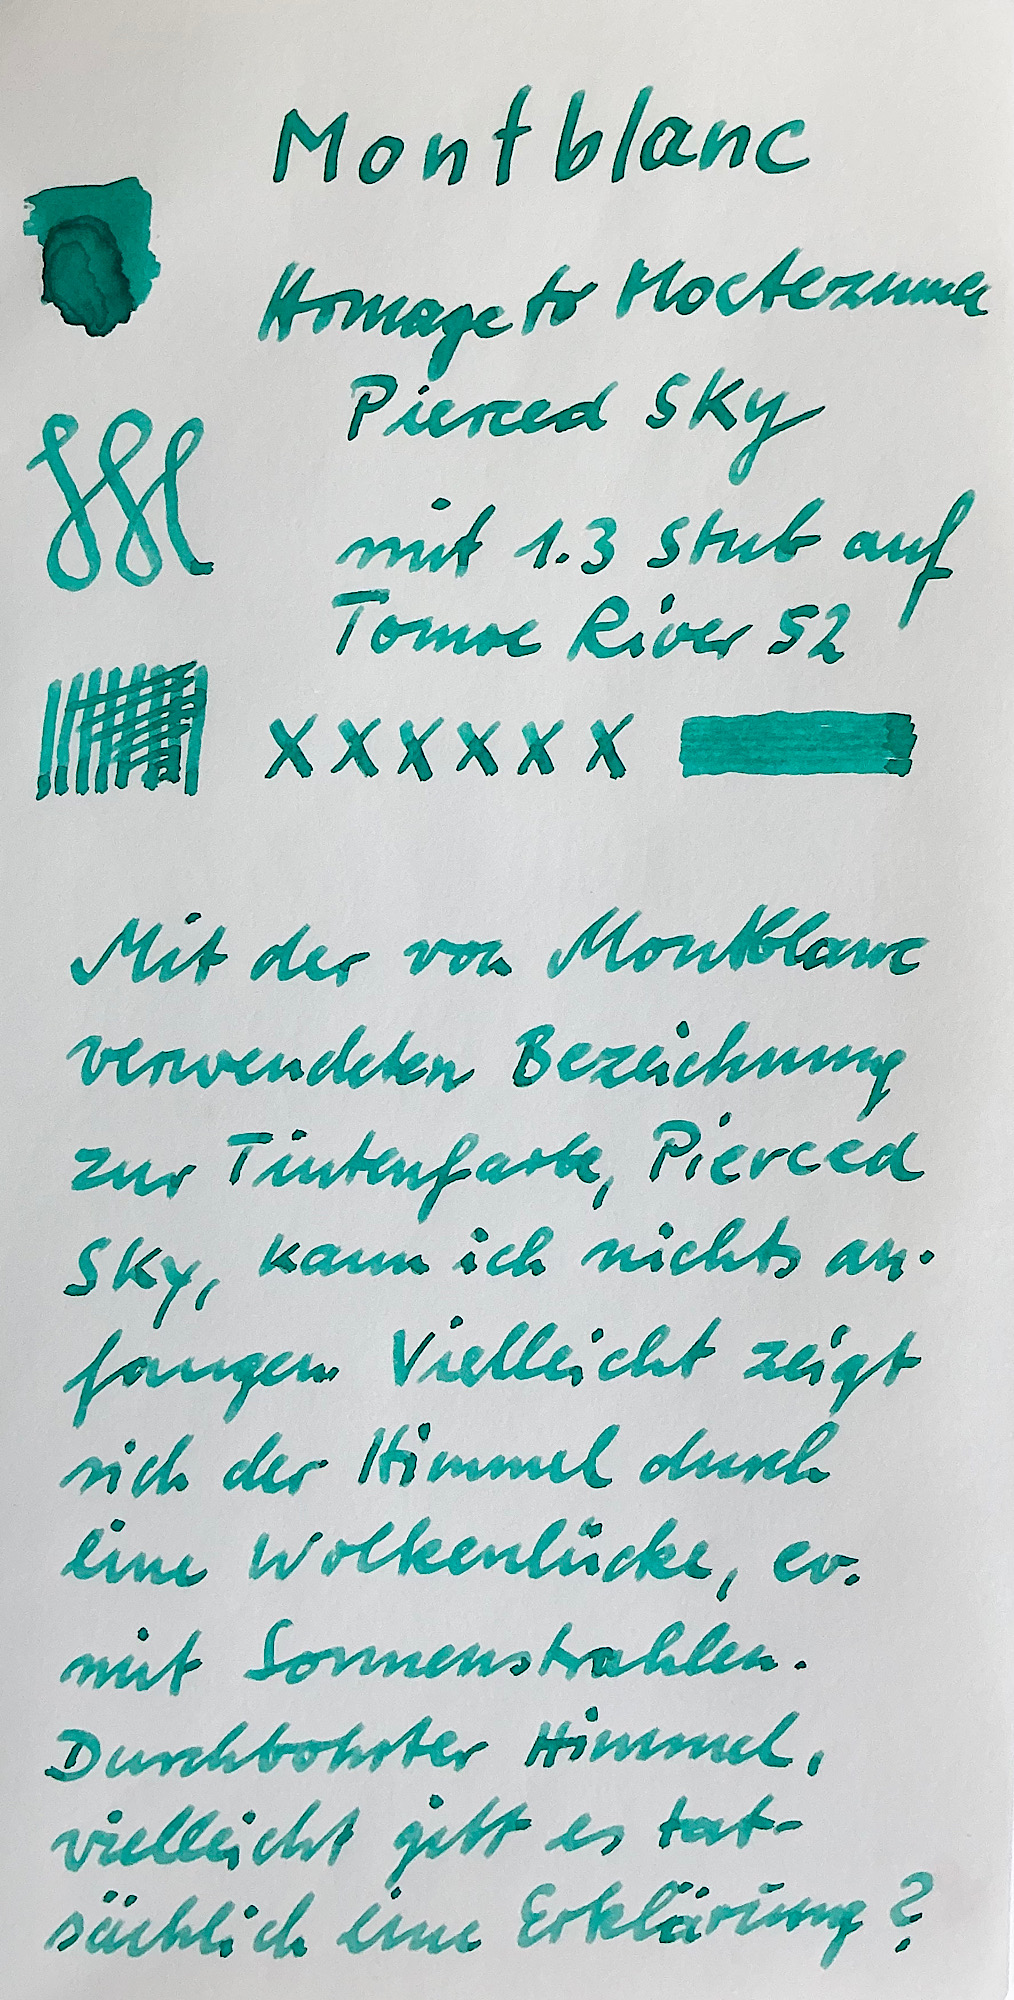 Montblanc
Homage to Moctezuma
Pierced Sky
mit 1.3 Stub auf
Tomoe River 52
x x x x x x
Mit der von Montblanc
verwendeten Bezeichnung
zur Tintenfarbe, Pierced
Sky, kann ich nichts an-
fangen. Vielleicht zeigt
sich der Himmel durch
eine Wolkenlücke, ev.
mit Sonnenstrahlen.
Durchbohrter Himmel,
vielleicht gibt es tat-
sächlich eine Erklärung?